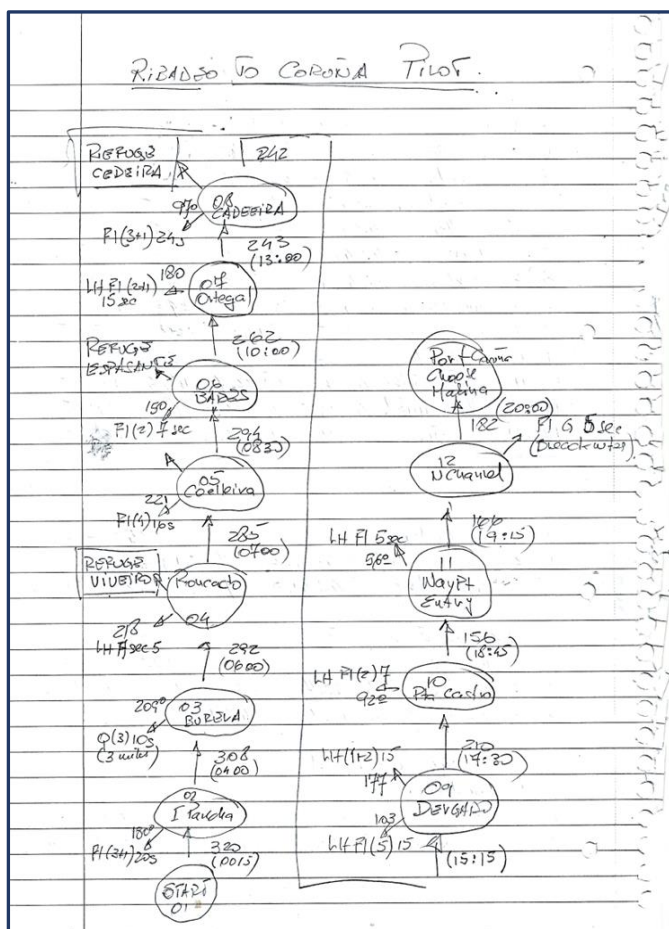 RIBADEO TO CORUÑA PILOT.
242
REFUGE
CEDEIRA
08
CADEEIRA
970
Fl(3+1)24s
243
(13:00)
07
Ortegal
180
LH Fl(2+1)
15 sec
262
(10:00)
REFUGE
ESPASANTE
06
BARES
190
Fl(2) 7 sec
294
(0830)
05
Coelleira
221
Fl(4)16s
285
(0700)
REFUGE
VIVEIRO
Roncado
04
218
LH Fl sec 5
292
(0600)
03
BURELA
209º
Q(3)10s
(3 miles)
308
(0400)
02
I Pancha
180º
Fl(3+1)20s
320
(0015)
START
01
Port Coruña
Choose
Marina
(20:00)
182
Fl G 5 sec
(Breackwater)
12
N Channel
166
(19:15)
LH Fl 5 sec
56º
11
WayPt
Entry
156
(18:45)
LH Fl(2)7
92º
10
Pta Castro
210
(17:30)
LH(1+2)15
177
09
DEVGADO
103
LH Fl(5)15
(15:15)